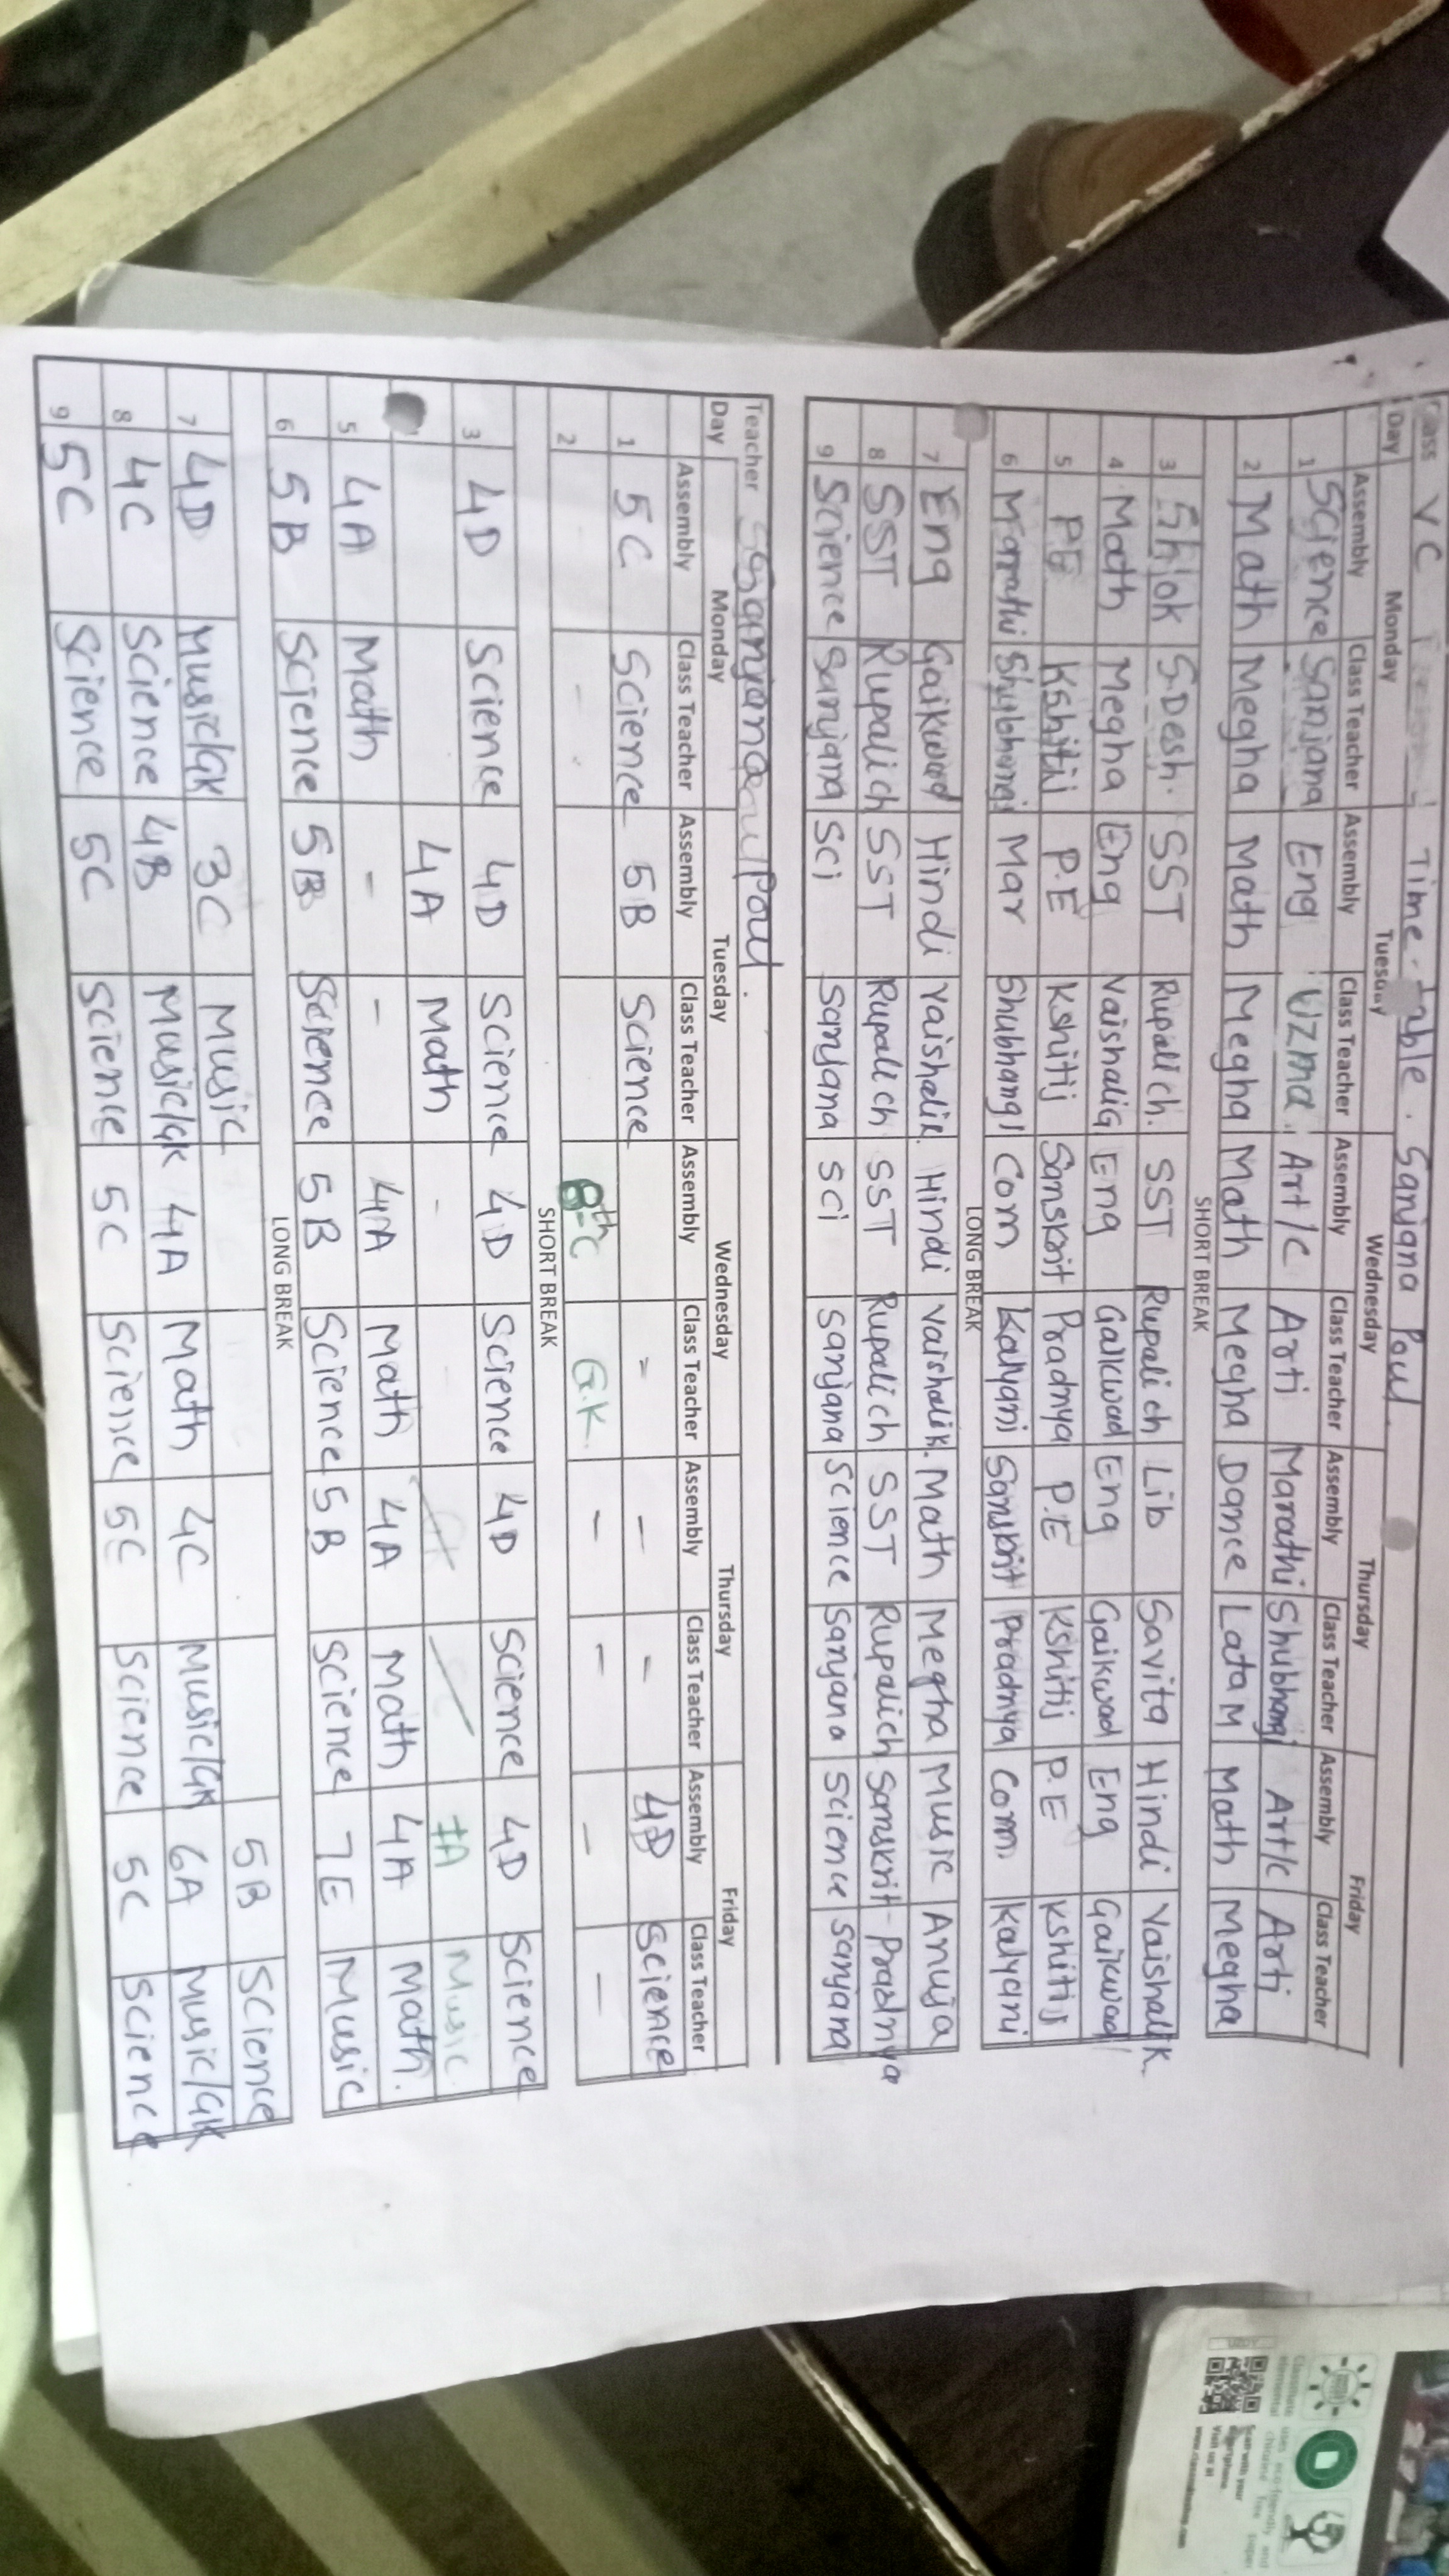 Class VC Time-table. Sanjana Poul
Day Monday Tuesday Wednesday Thursday Friday
Assembly Class Teacher Assembly Class Teacher Assembly Class Teacher Assembly Class Teacher Assembly Class Teacher
1 Science Sanjana Eng Uzma. Art/c Arti Marathi Shubhangi Art/c Arti
2 Math Megha Math Megha Math Megha Dance Lata M Math Megha
SHORT BREAK
3 Shlok S.Desh. SST Rupali ch. SST Rupali ch Lib Savita Hindi Vaishali K.
4 Math Megha Eng Vaishali G Eng Gaikwad Eng Gaikwad Eng Gaikwad
5 PE Kshitij P.E Kshitij Sanskrit Pradnya P.E Kshitij P.E Kshitij
6 Marathi Shubhangi Mar Shubhangi Com Kalyani Sanskrit Pradnya Com. Kalyani
LONG BREAK
7 Eng Gaikwad Hindi Vaishali K. Hindi Vaishali K. Math Megha Music Anuja
8 SST Rupali ch SST Rupali ch SST Rupali ch SST Rupali ch Sanskrit Pradnya
9 Science Sanjana Sci Sanjana Sci Sanjana Science Sanjana Science Sanjana
Teacher Sanjana Poul.
Day Monday Tuesday Wednesday Thursday Friday
Assembly Class Teacher Assembly Class Teacher Assembly Class Teacher Assembly Class Teacher Assembly Class Teacher
1 5C Science 5B Science = - - 4D Science
2 8th C G.K. - - - -
SHORT BREAK
3 4D Science 4D Science 4D Science 4D Science 4D Science
4A Math - Music
5 4A Math - - 4A Math 4A Math 4A Math.
6 5B Science 5B Science 5B Science 5B Science 7E Music
LONG BREAK
7 4D Music/GK 3C Music 5B Science
8 4C Science 4B Music/GK 4A Math 4C Music/GK 6A Music/GK
9 5C Science 5C Science 5C Science 5C Science 5C Science
Scan with your
smartphone
Visit us at